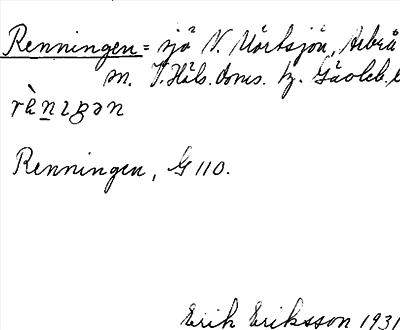 Renningen = sjö N. Mörtsjön, Arbrå
sn. V. Häls. doms. tg. Gävleb. l
rὲnıŋən
Renningen, G 110.
Erik Eriksson 1931